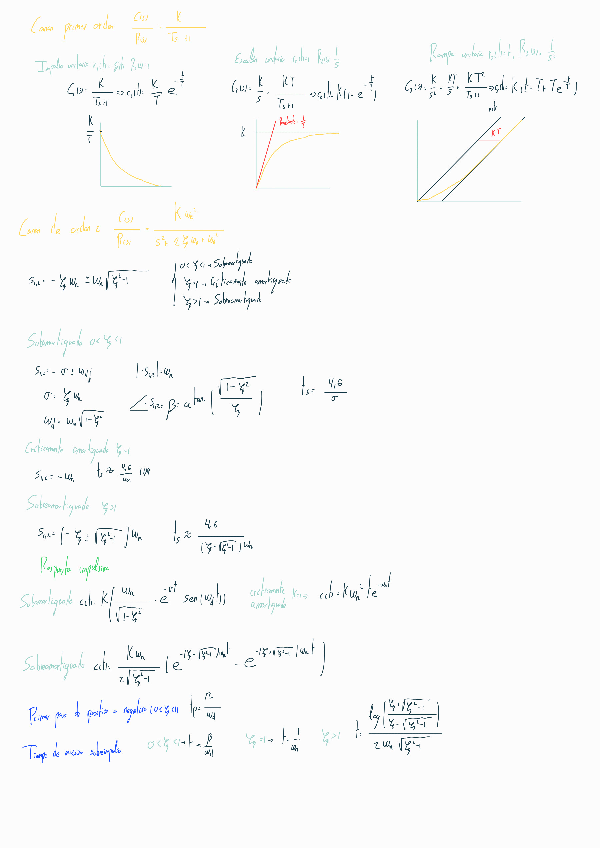 Caso primer orden C(s)/R(s) = K/(Ts+1)
Impulso unitario r(t)=δ(t) R(s)=1
G(s)= K/(Ts+1) => c(t)= K/T e^(-t/T)
Escalón unitario R(s)= 1/s
C(s)= K/s - KT/(Ts+1) => c(t)= K(1-e^(-t/T))
Rampa unitaria r(t)=t, R(s)= 1/s²
C(s)= K/s² - KT/s + KT²/(Ts+1) => c(t)= K(t-T+Te^(-t/T))
K/T
K
KT
Caso de orden 2 C(s)/R(s) = Kωn²/(s²+2ξωn s+ωn²)
s1,2= -ξωn ± ωn√(ξ²-1)
0<ξ<1 → Subamortiguado
ξ=1 → Críticamente amortiguado
ξ>1 → Sobreamortiguado
Subamortiguado 0<ξ<1
s1,2= -σ ± ωd j
|s1,2|=ωn
σ= ξωn
∠s1,2= β= atan(√(1-ξ²)/ξ)
ts= 4,6/σ
ωd= ωn√(1-ξ²)
Críticamente amortiguado ξ=1
s1,2= -ωn
Sobreamortiguado ξ>1
s1,2= (-ξ ± √(ξ²-1))ωn
ts ≈ 4,6/((ξ-√(ξ²-1))ωn)
Respuesta impulsiva
Subamortiguado c(t)= K(ωn/√(1-ξ²) · e^(-σt) sen(ωd t))
críticamente amortiguado
c(t)= Kωn² t e^(-ωn t)
Sobreamortiguado c(t)= Kωn/(2√(ξ²-1)) (e^(-(ξ-√(ξ²-1))ωn t) - e^(-(ξ+√(ξ²-1))ωn t))
Primer paso de positivo a negativo (0<ξ<1) tp= π/ωd
Tiempo de máximo
0<ξ<1 → t= β/ωd
ξ=1 → t= 1/ωn
ξ>1
t= log((ξ+√(ξ²-1))/(ξ-√(ξ²-1)))/(2ωn√(ξ²-1))